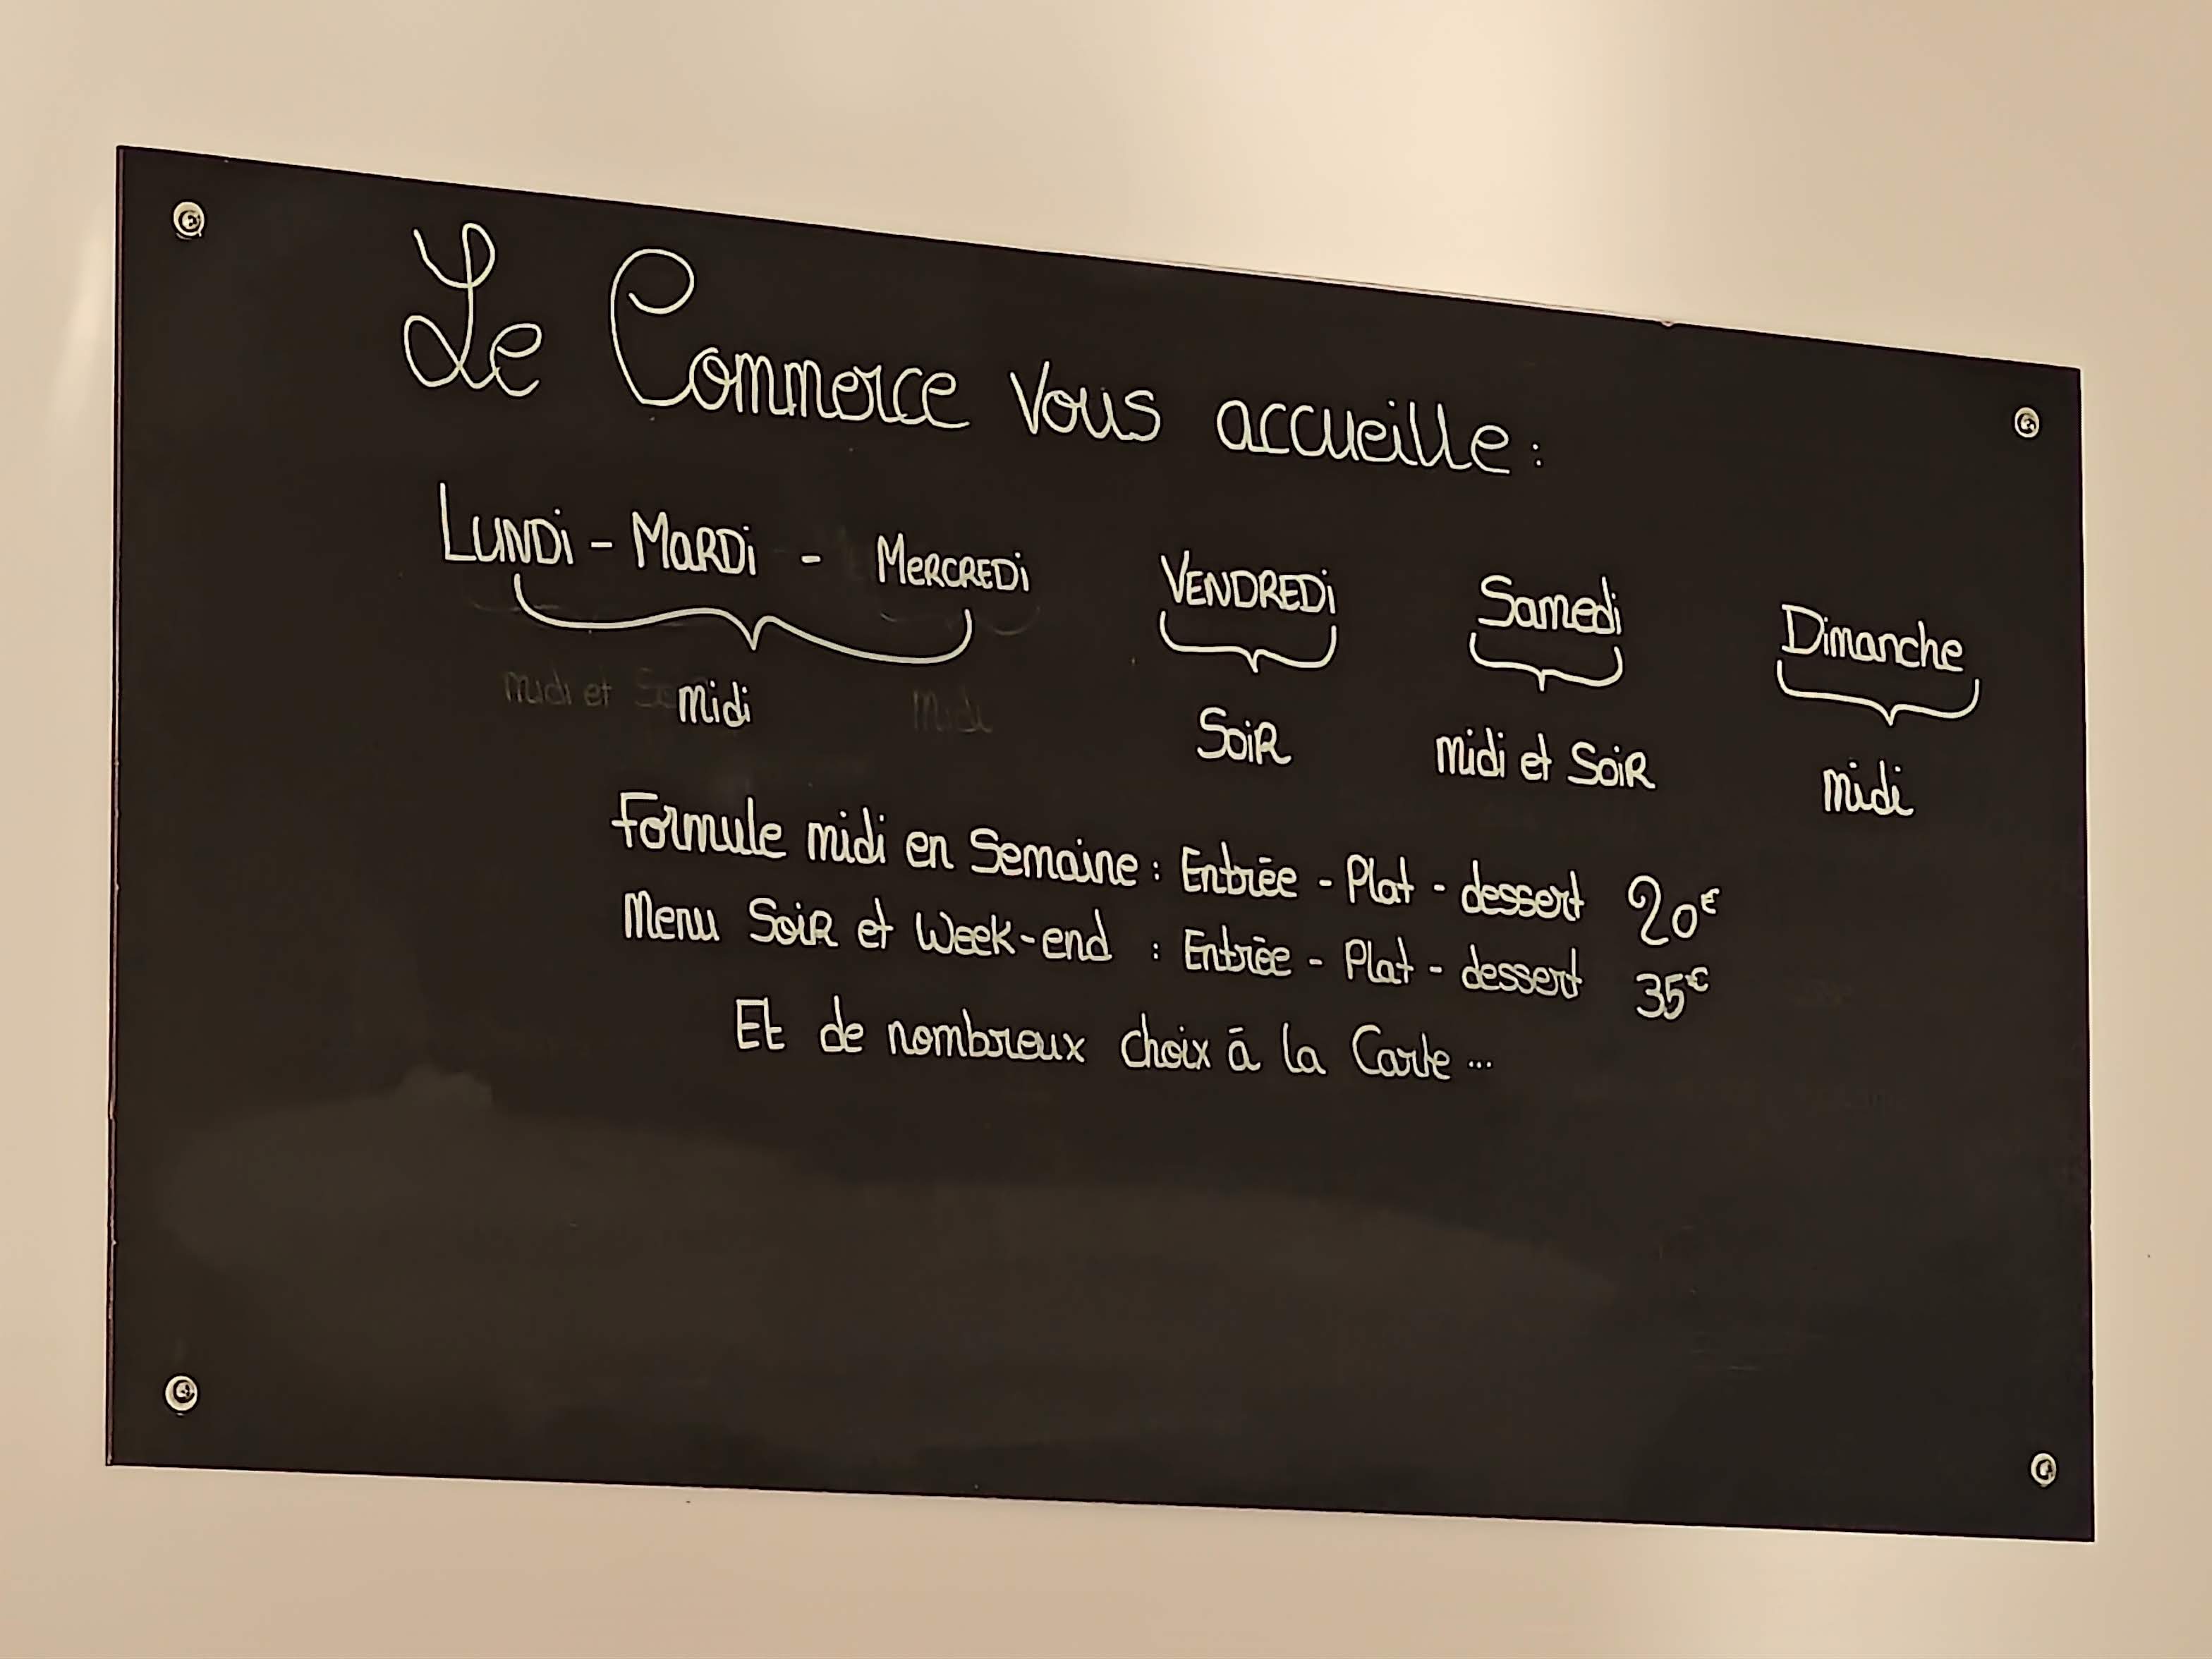 Le Commerce Vous accueille :
LUNDi - MaRDi - MeRCREDi VENDREDi Samedi Dimanche
midi et midi Midi SoiR midi et SoiR midi
Formule midi en Semaine : Entrée - Plat - dessert 20€
Menu SoiR et Week-end : Entrée - Plat - dessert 35€
Et de nombreux choix à la Carte ...